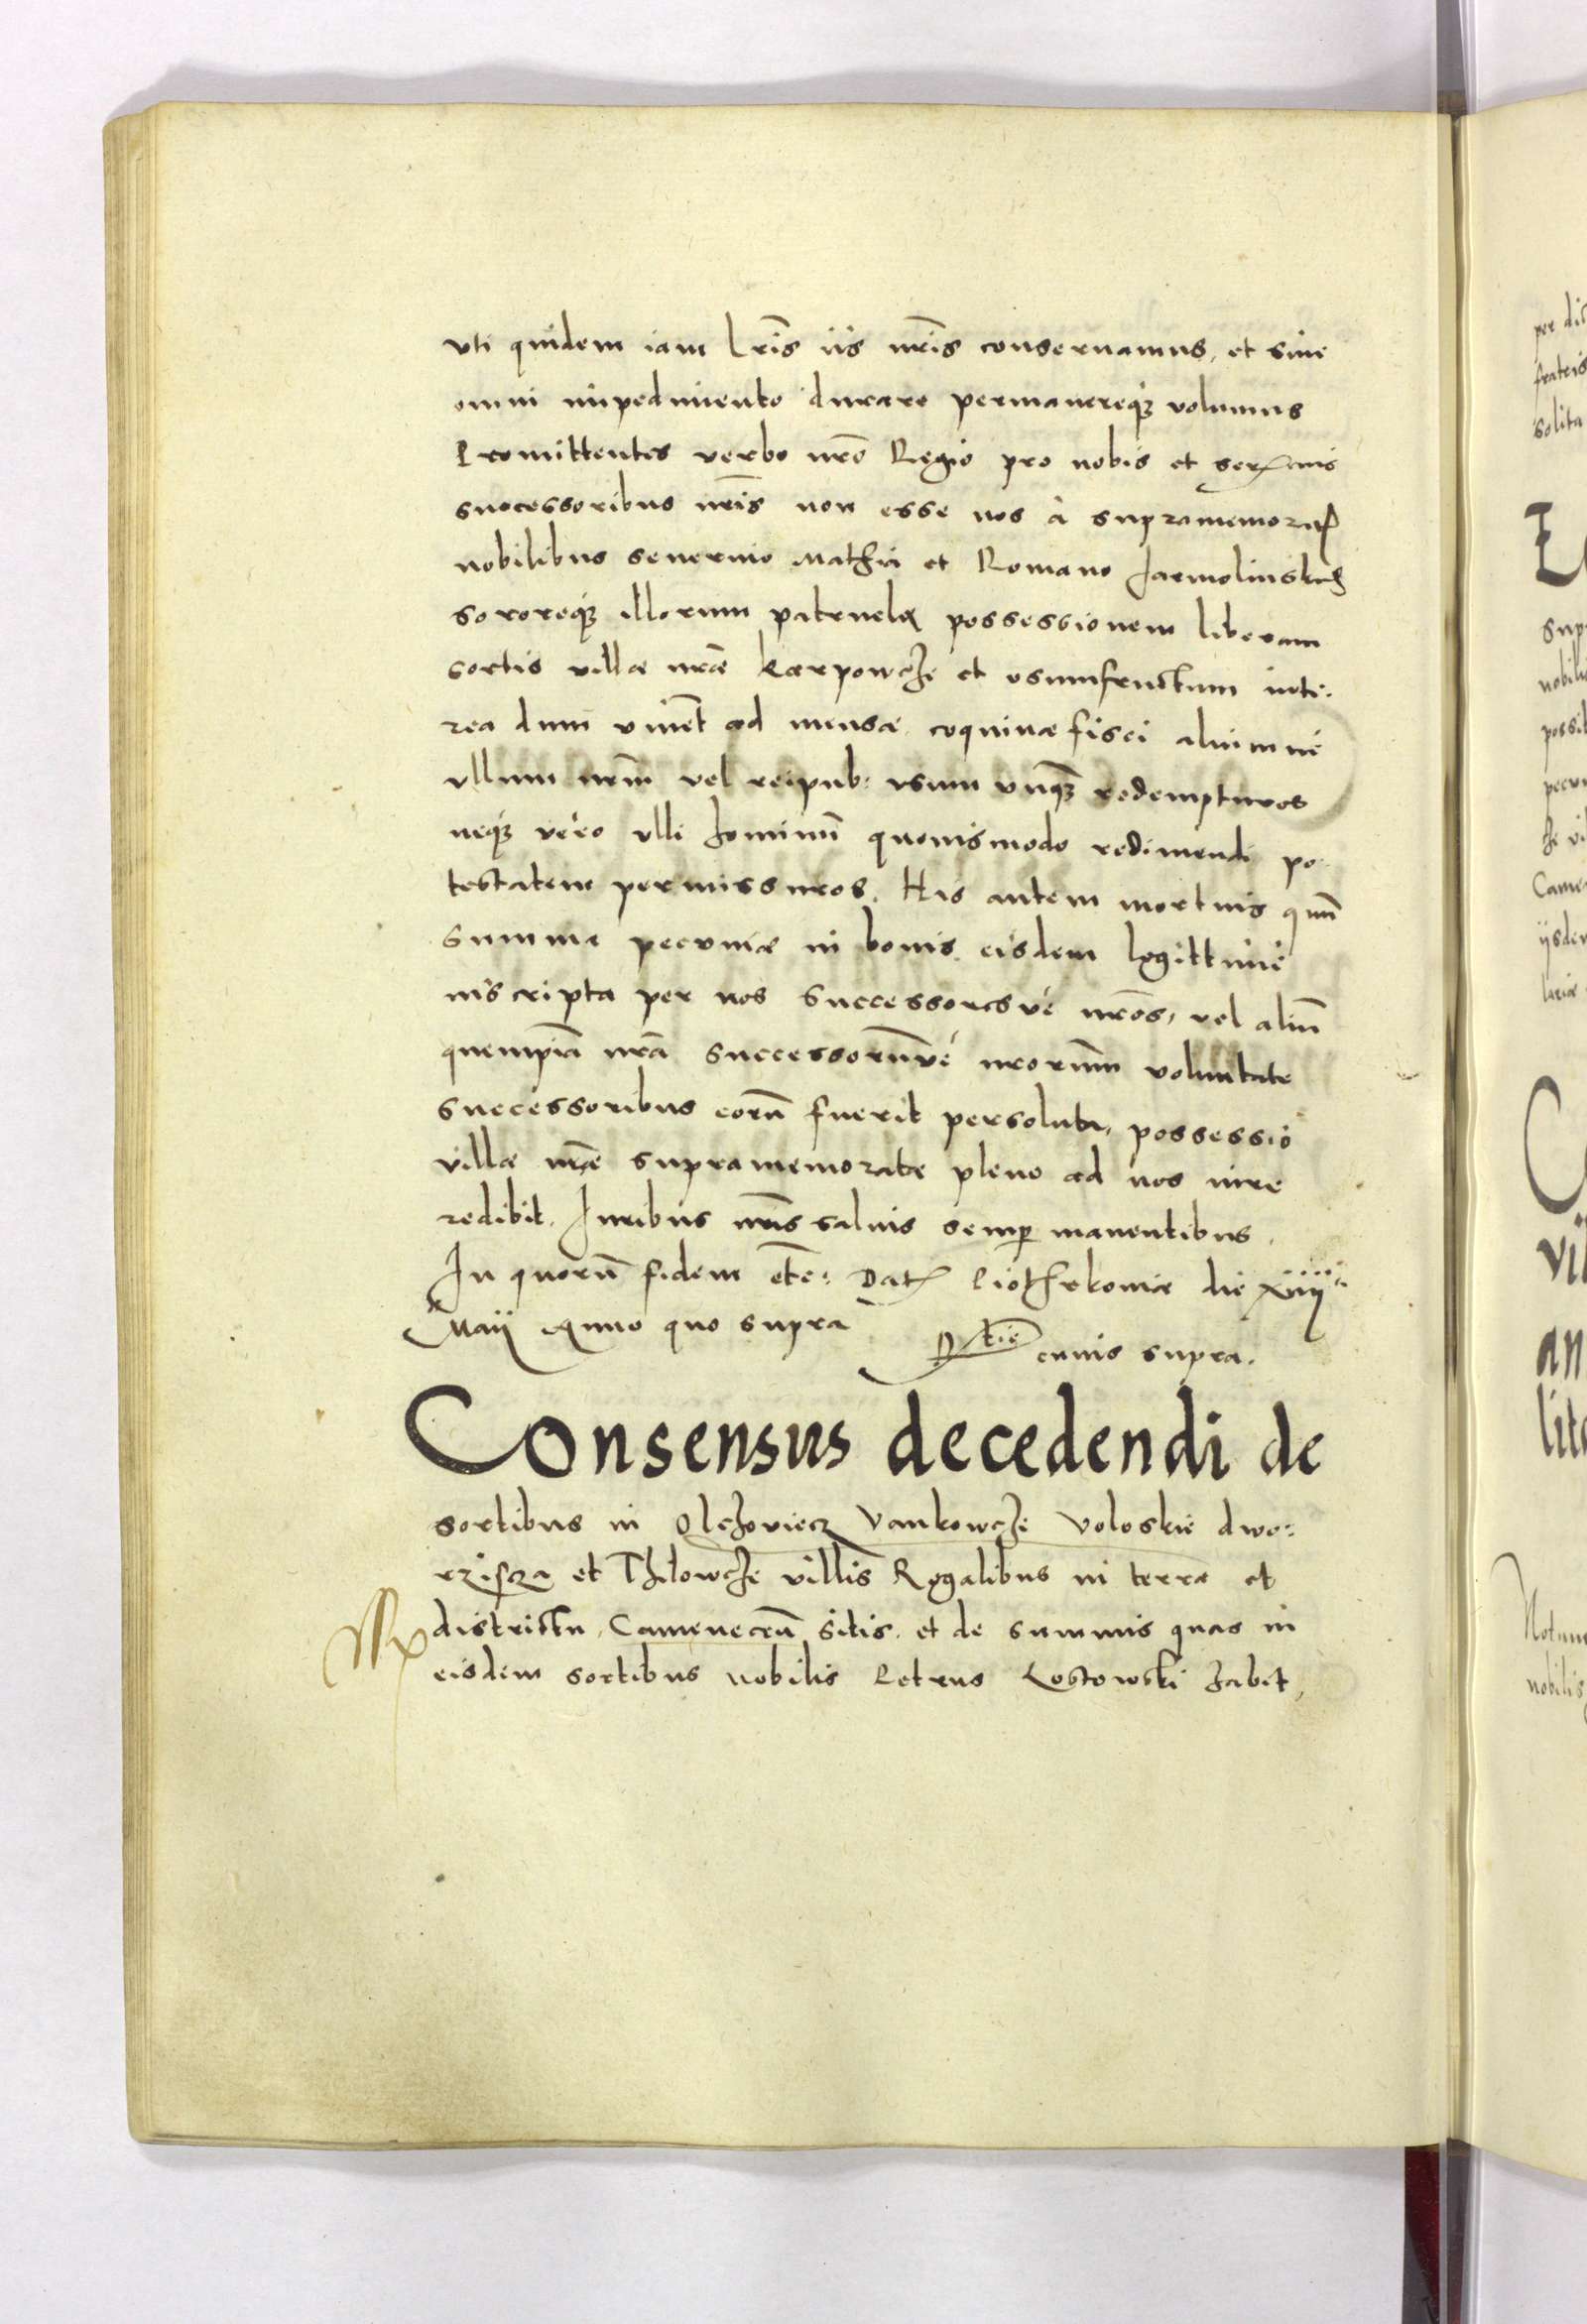 vti quidem iam lr̃is iis nr̃is conseruamus, et sine
omni impedimento durare permanereq3 volumus
Promittentes verbo nr̃o Regio pro nobis et
successoribus nr̃is non esse nos à supramemorat
nobilibus Seuerino Mathia et Romano Jarmolinsky
sororeq3 illorum patrueli possessionem liberam
sortis villæ nr̃æ Karpowcze et vsumfructum inte:
rea dum viuẽt ad mensæ coquinæ fisci aliumue
vllum nr̃m vel reipub: vsum vnq̃3 redempturos
neq3 vero vlli hominũ quouismodo redimendi po
testatem permissuros. His autem mortuis quũ
summa pecuniæ in bonis eisdem legittimè
inscripta per nos successoresue nr̃os, vel aliũ
quempiã nr̃a successorũue nrorum̃ voluntate
successoribus eorũ fuerit persoluta, possessio
villæ nr̃æ supramemoratæ pleno ad nos iure
redibit. Juribus nr̃is saluis semp manentibus.
In quorũ fidem etc: Dat Piothrkouiæ die xiiij
Maij Anno quo supra
cuius supra.
Consensus decedendi de
sortibus in Olchouiecz Vankowcze Voloskie dwo:
rziscza et Thilowcze villis Regalibus in terra et
districtu Cameneceñ sitis. et de summis quas in
eisdem sortibus nobilis Petrus Lostowski habet,